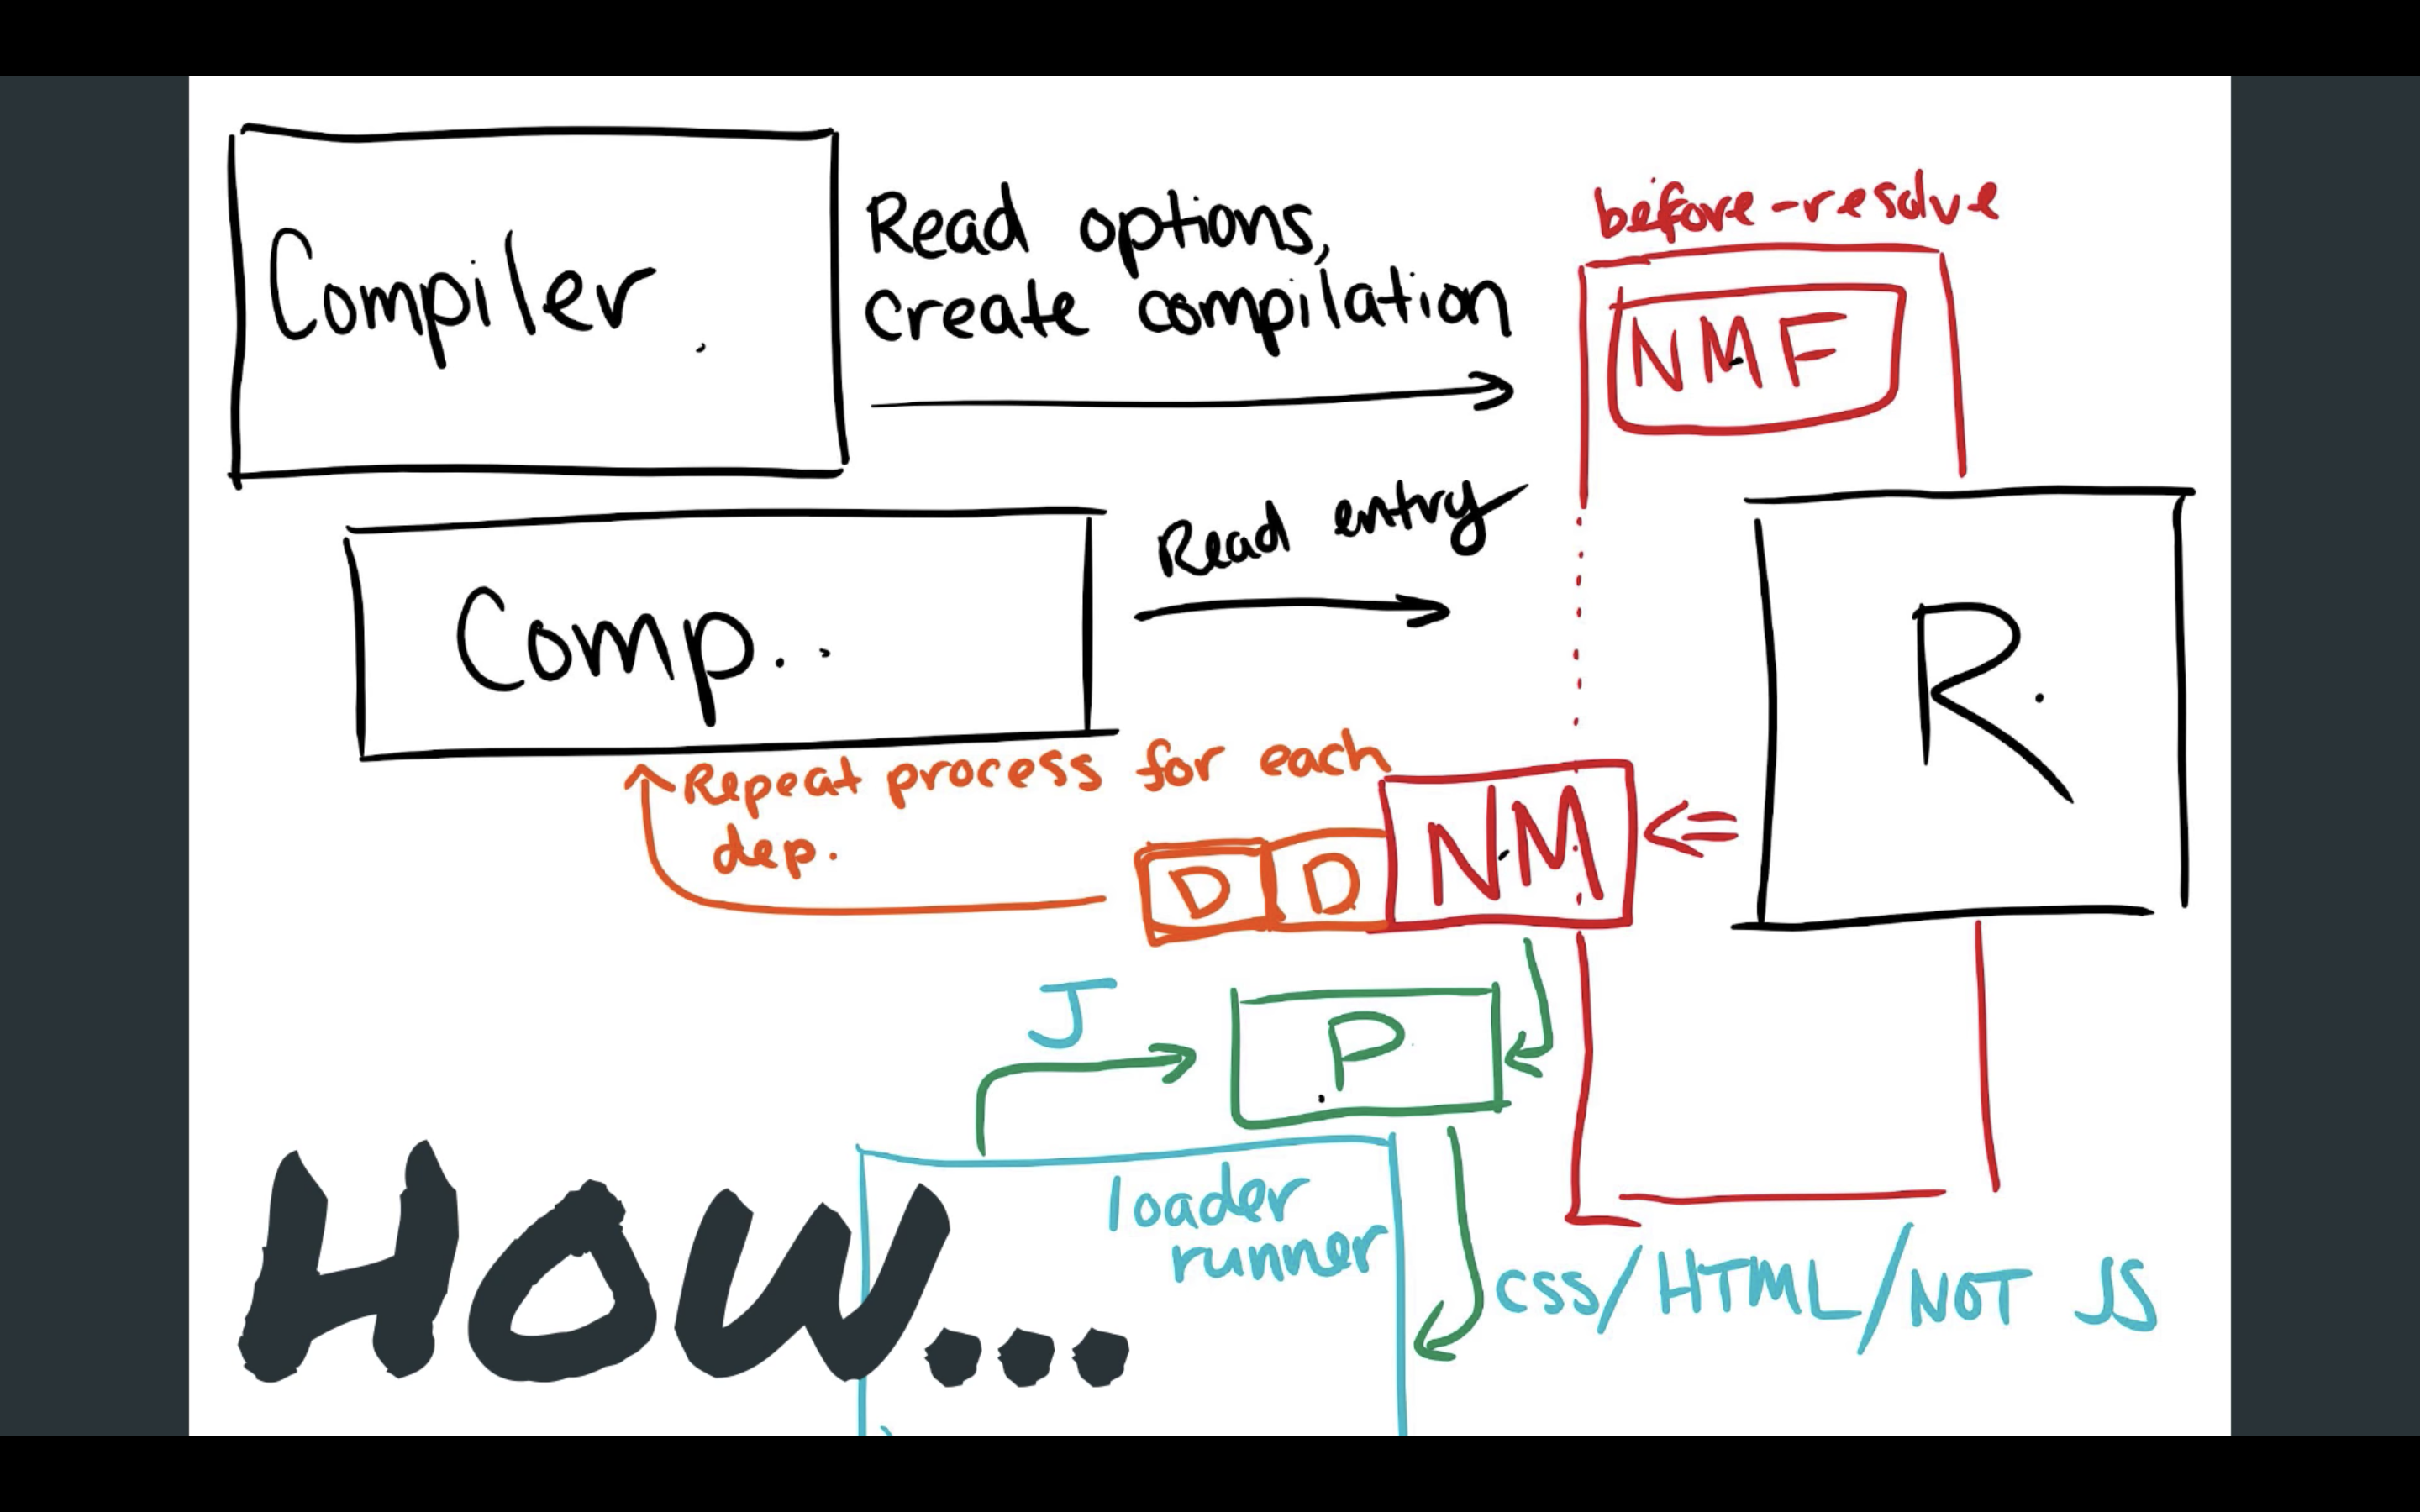 Compiler
Read options,
create compilation
before-resolve
NMF
Comp..
Read entry
R.
Repeat process for each
dep.
D D NM
J
P
loader
runner
css/HTML/NOT JS
HOW...